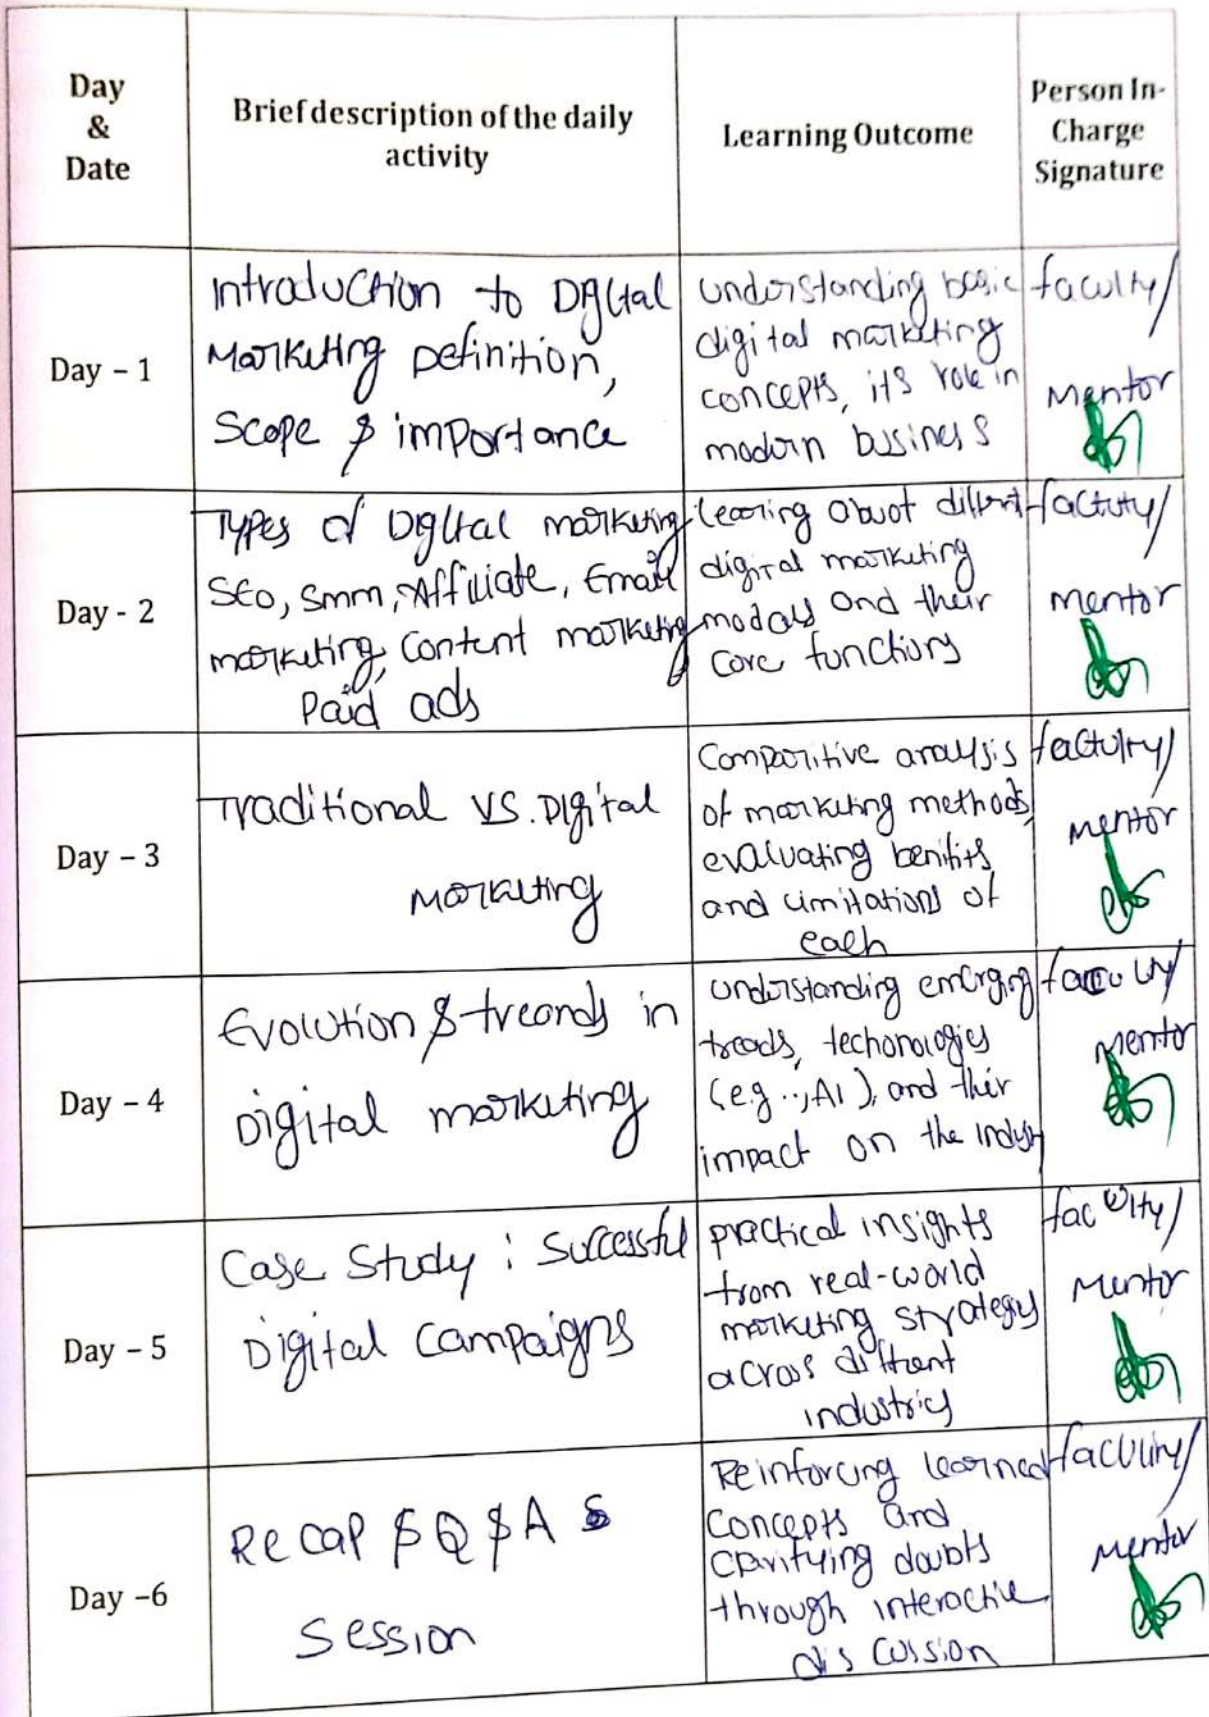 Day
&
Date
Brief description of the daily
activity
Learning Outcome
Person In-
Charge
Signature
Day – 1
Introduction to Digital
Marketing Definition,
Scope & importance
understanding basic
digital marketing
concepts, it's role in
modern bussiness
faculty/
Mentor
Day - 2
Types of Digital marketing
SEO, Smm, Affiliate, Email
marketing, Content marketing
Paid ads
digital marketing
and their
core functions
mentor
Day – 3
Traditional VS. Digital
Marketing
Comparitive analysis
of marketing methods,
evaluating benifits
and limitations of
each
factulty/
mentor
Day – 4
Evolution & treands in
Digital marketing
understanding emerging
treads, techonologies
(e.g..,AI), and thir
impact on the
Mentor
Day – 5
Case Study : Successful
Digital Campaigns
practical insights
from real-world
marketing strategy
across diffrent
industries
faculty/
Mentor
Day –6
Recap & Q & A
Session
Reinforcing learned
concepts and
clarifying doubts
through interactive
discussion
faculity/
Mentor